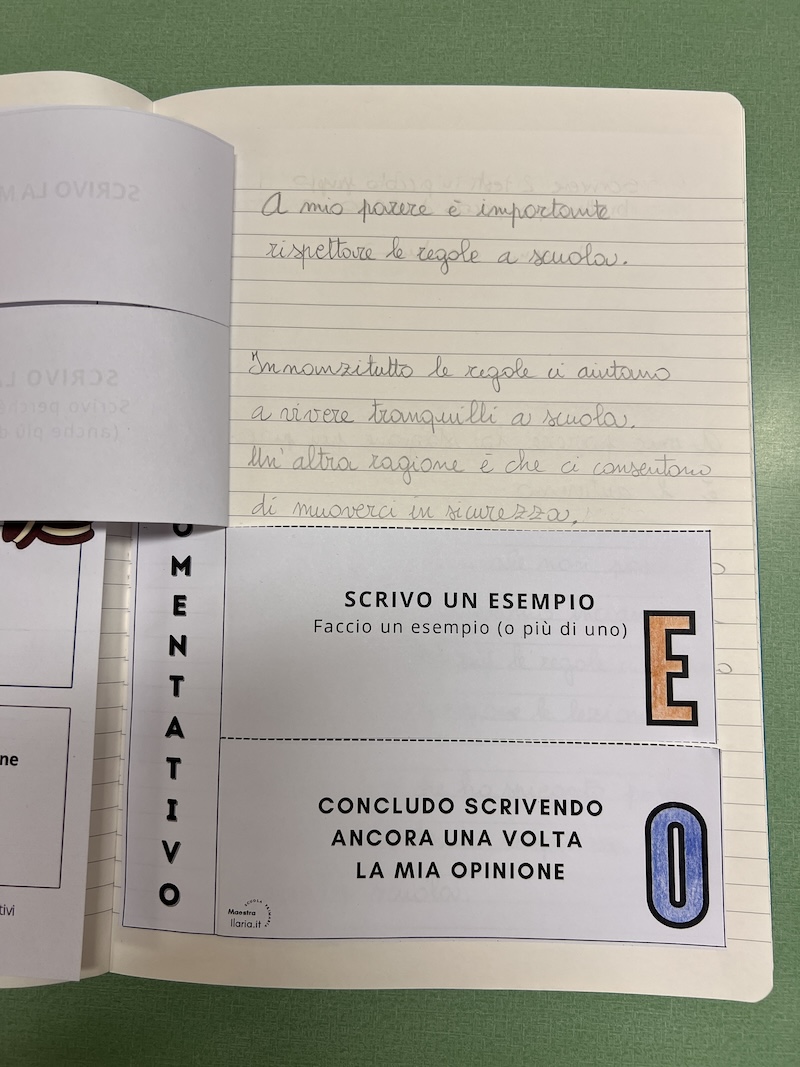 SCRIVO LA M
A mio parere è importante
rispettare le regole a scuola.
SCRIVO L
Scrivo perché
(anche più d
Innanzitutto le regole ci aiutano
a vivere tranquilli a scuola.
Un'altra ragione è che ci consentono
di muoverci in sicurezza.
OMENTATIVO
SCRIVO UN ESEMPIO
Faccio un esempio (o più di uno)
E
ne
CONCLUDO SCRIVENDO
ANCORA UNA VOLTA
LA MIA OPINIONE
O
tivi
SCUOLA PRIMARIA
Maestra
Ilaria.it